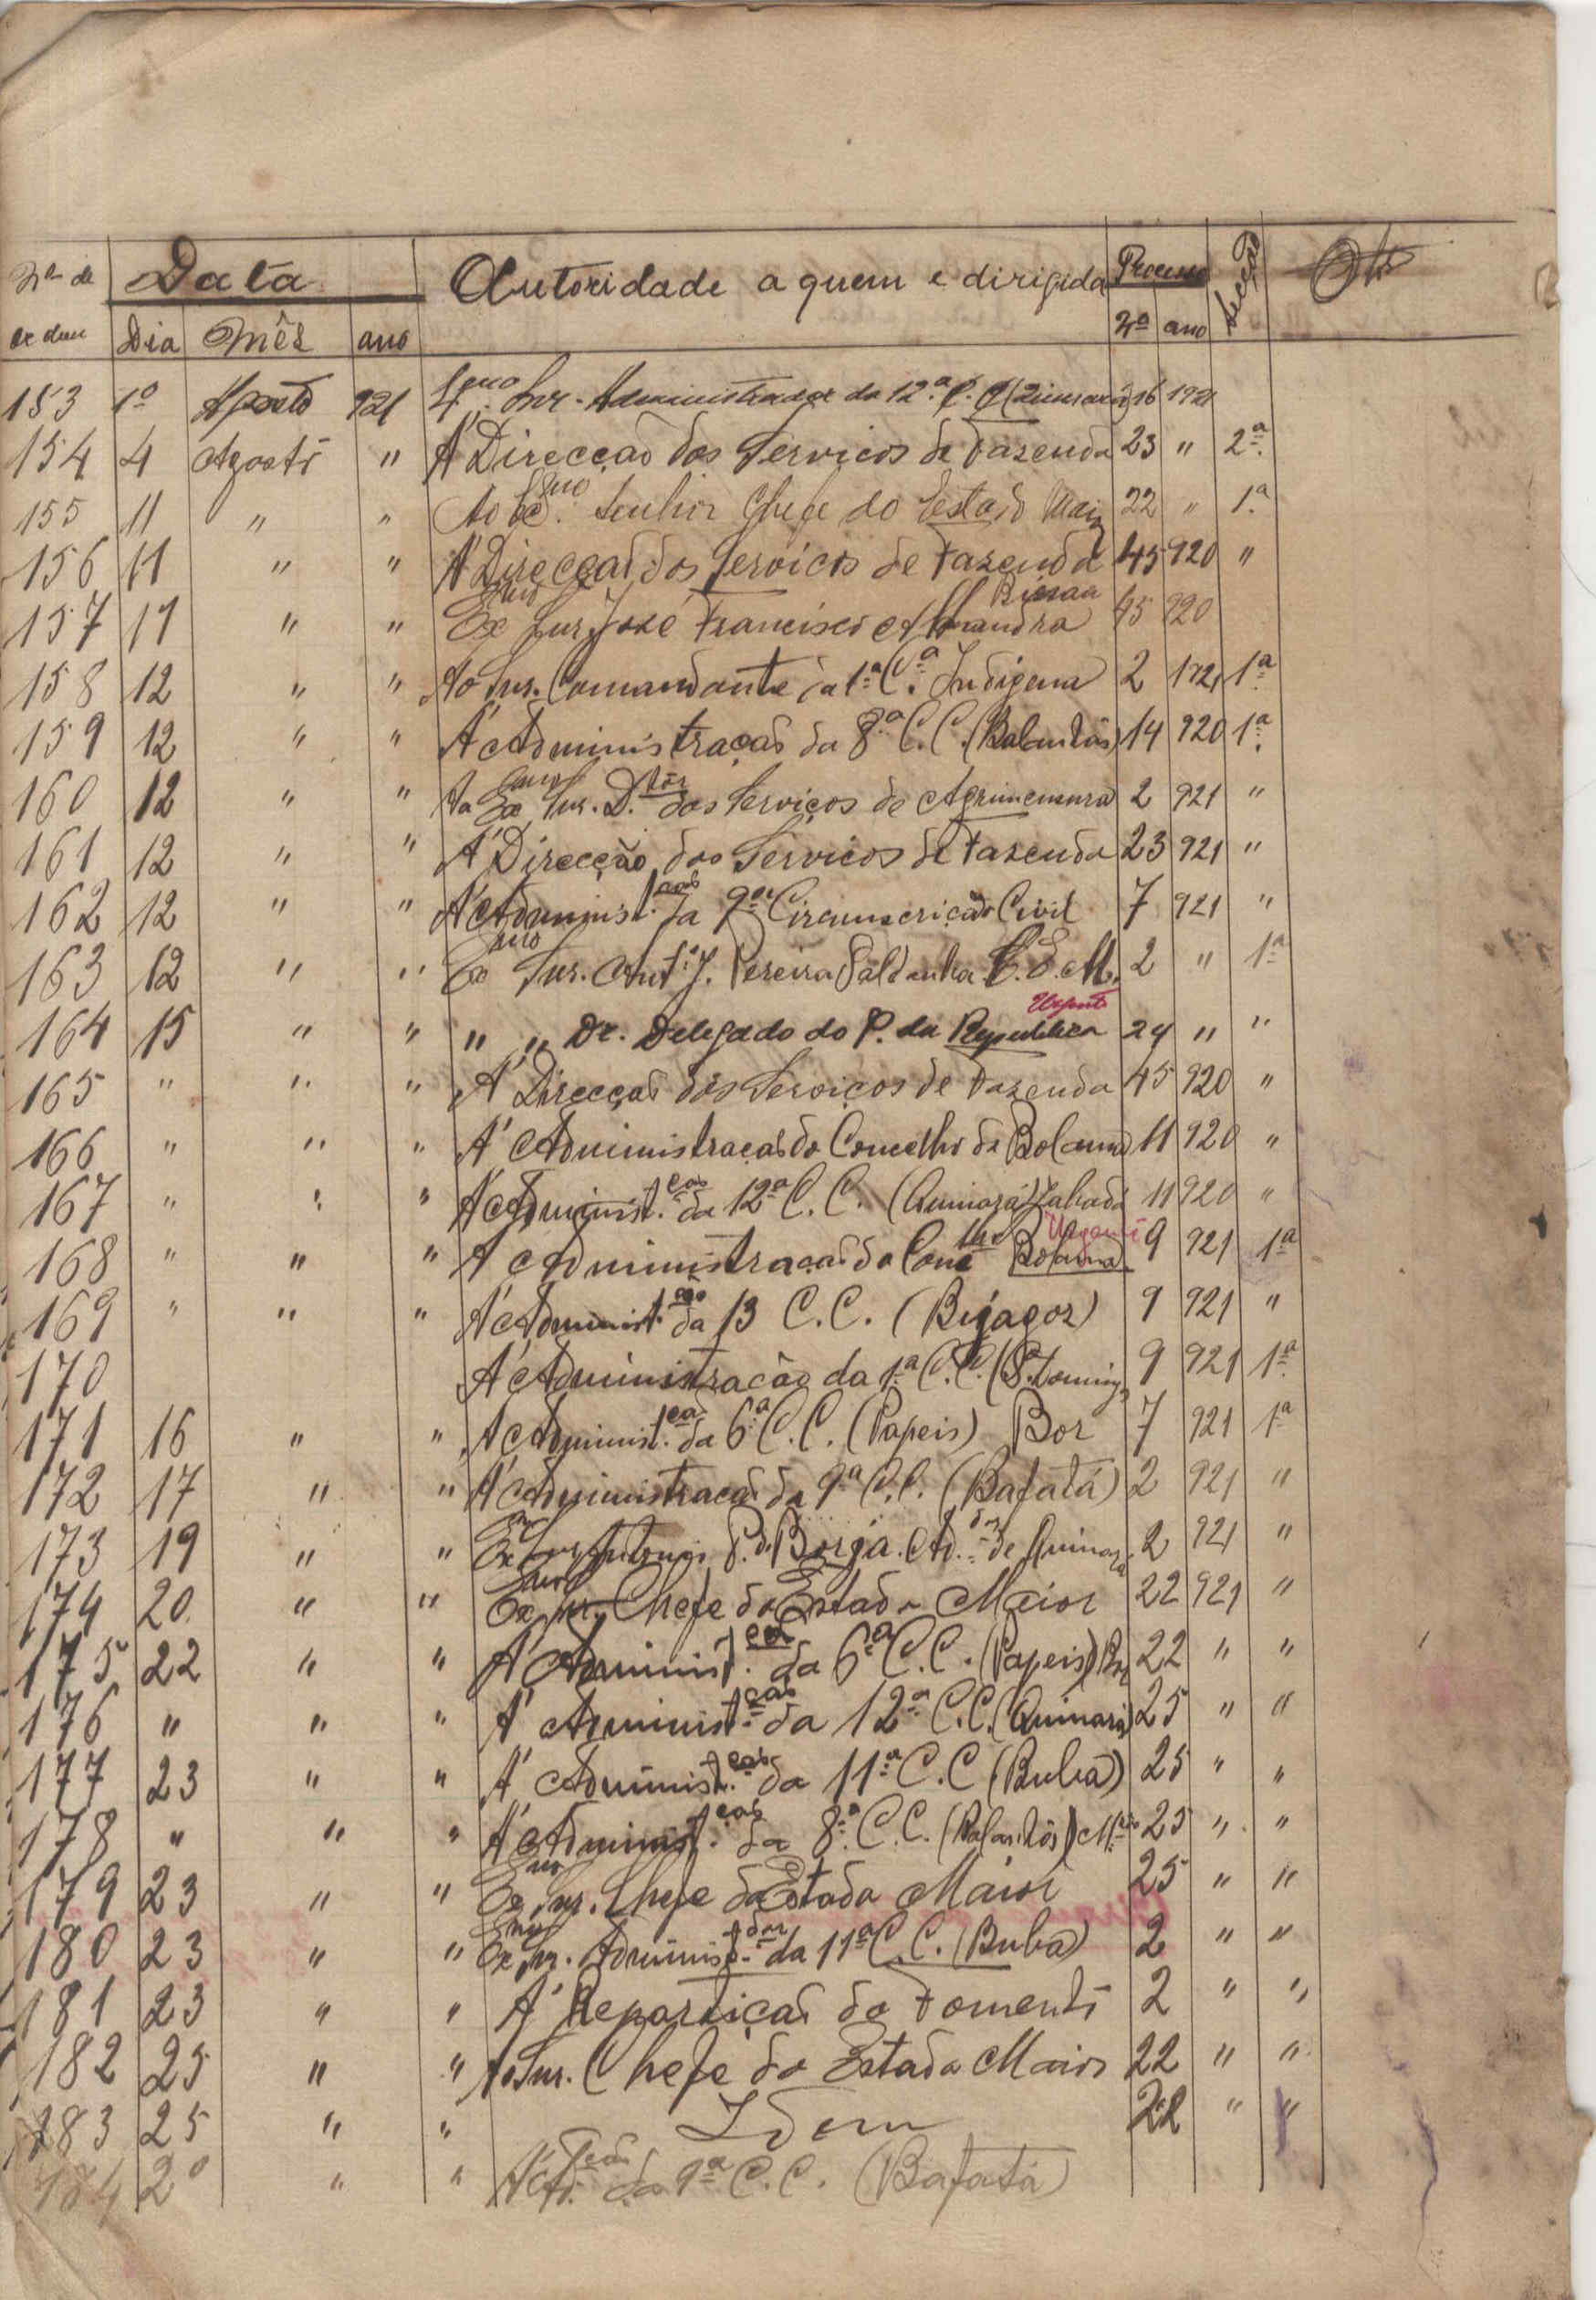 Nº de Data Autoridade a quem e dirigida Processo Secção
ordem Dia Mês ano Nº ano
153 1º Agosto 921 Snr. Administrador da 12.ª C. C. 16 1921
154 4 Agosto " Á Direcção dos Serviços de Fazenda 23 " 2ª
155 11 " " Ao Exmo. Senhor Chefe do Estado Maior 22 " 1.ª
156 11 " " Á Direcção dos Serviços de Fazenda 45 920 "
Bissau
157 11 " " Exmo Snr. José Francisco 45 920
158 12 " " Ao Snr. Comandante da 1ª C.ª Indigena 2 1921 1ª
159 12 " " Á Administração da 8ª C. C. (Balantas) 14 920 1ª
160 12 " " Ao Exmo Snr. D.tor dos Serviços de Agrimensura 2 921 "
161 12 " " Á Direcção dos Serviços de Fazenda 23 921 "
162 12 " " Á Administ.ção da 9ª Circunscrição Civil 7 921 "
163 12 " " Exmo Snr. Antº J. Pereira Saldanha C. E. M. 2 " 1ª
Urgente
164 15 " " " " Dr. Delegado do P. da Republica 24 " "
165 " " " Á Direcção dos Serviços de Fazenda 45 920 "
166 " " " Á Administração do Concelho de Bolama 11 920 "
167 " " " Á Administ.ção da 12ª C. C. (Quinará) 11 920 "
Urgente
168 " " " Á Administração do Conclho Bolama 9 921 1ª
169 " " " Á Administ.ção da 13 C. C. (Bijagoz) 9 921 "
170 Á Administracão da 1ª C. C. (S. Domingos 9 921 1ª
171 16 " " Á Administ.ção da 6ª C. C. (Papeis) Bor 7 921 1ª
172 17 " " Á Administração da 9ª C. C. (Bafatá) 2 921 "
173 19 " " Exmo Snr Antonio P. de Borja. Ad.dor de Quinara 2 921 "
174 20 " " Exmo Snr. Chefe do Estado Maior 22 921 "
175 22 " " Á Administ.ção da 6ª C. C. (Papeis) Bor 22 " "
176 " " " Á Administ.ção da 12ª C. C. (Quinará) 25 " "
177 23 " " Á Administ.ção da 11ª C. C (Buba) 25 " "
178 " " " Á Administ.ção da 8ª C. C. (Balantas) 25 " "
179 23 " " Exmo Snr. Chefe do Estado Maior 25 " "
180 23 " " Exmo Snr. Administ.dor da 11ª C. C. (Buba) 2 " "
181 23 " " Á Repartição do Fomento 2 " "
182 25 " " Ao Snr. Chefe do Estado Maior 22 " "
183 25 " " Idem 22 " "
184 2º " " Á Ad.ção da 9ª C. C. (Bafatá)